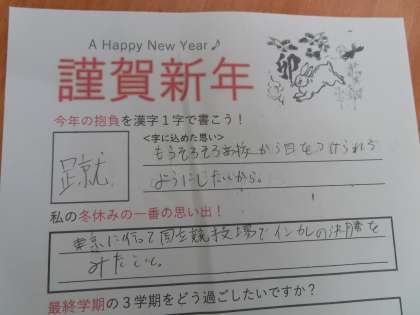 A Happy New Year♪
謹賀新年
卯
今年の抱負を漢字１字で書こう！
<字に込めた思い>
蹴
もうそろそろ
から目をつけられる
ようにしたいから。
私の冬休みの一番の思い出！
東京に行って国立競技場でインカレの決勝を
みたこと。
最終学期の３学期をどう過ごしたいですか？